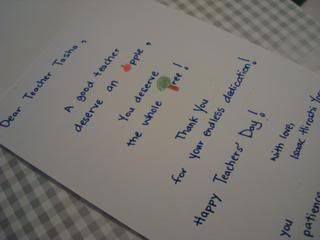 Dear Teacher Tasha,
A good teacher
deserve an apple,
You deserve
the whole Tree!
Thank You
for your endless dedication!
Happy Teachers' Day!
With love,
Isaac Hiroshi
you
patience